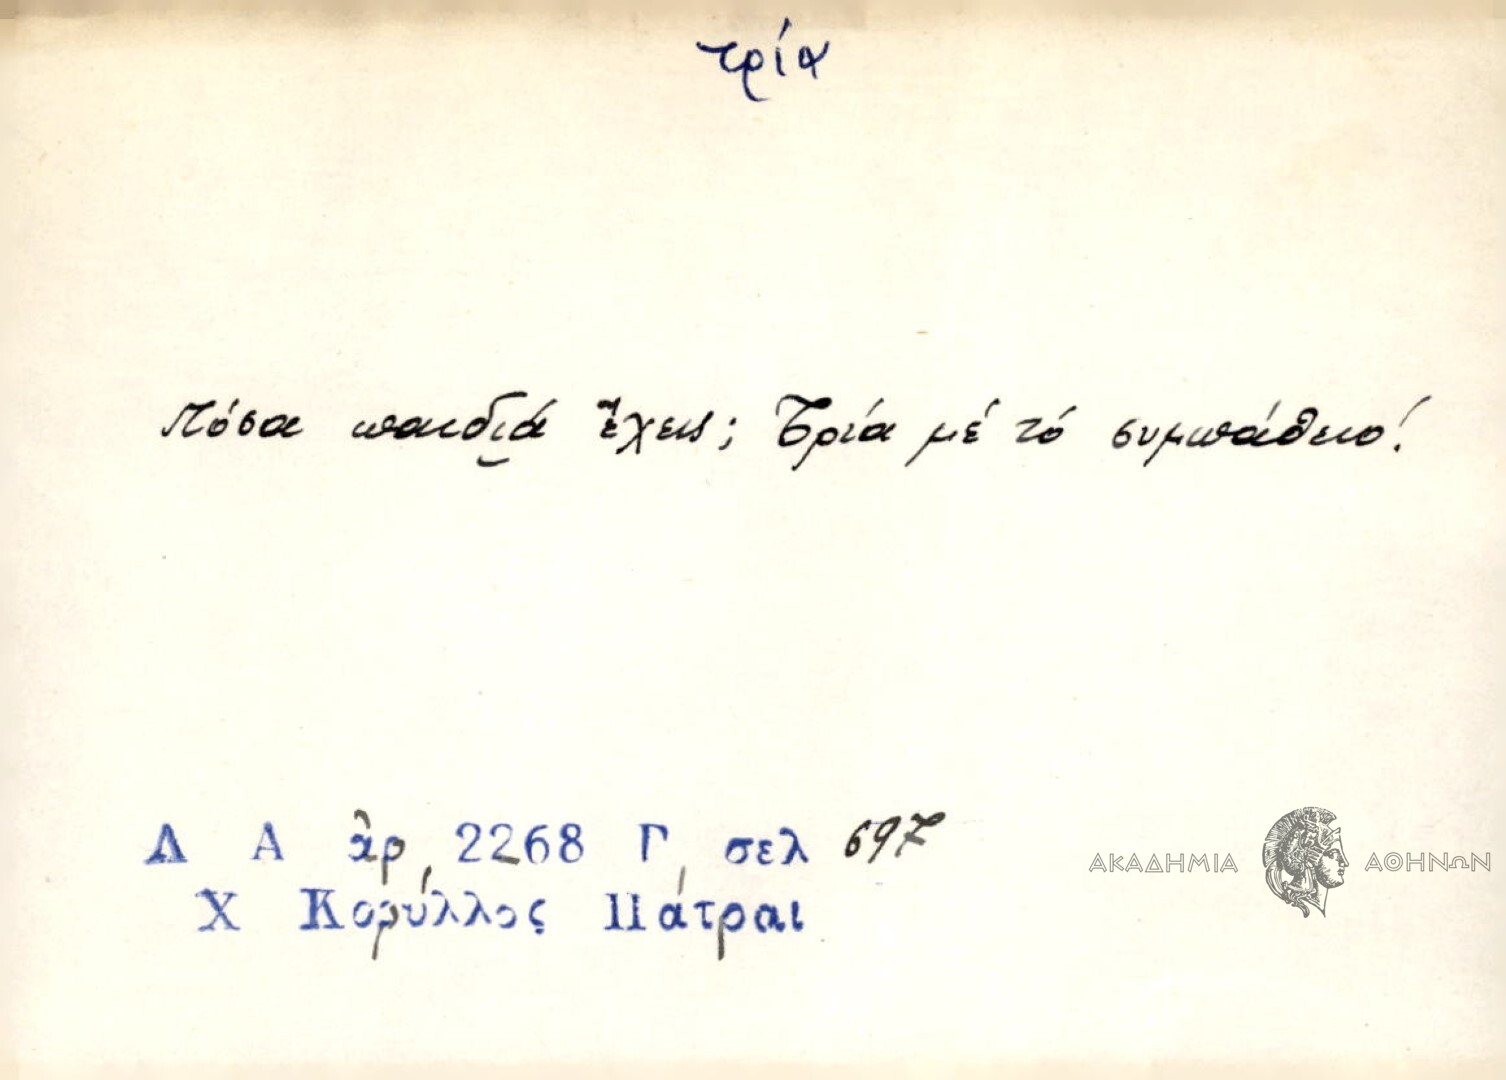 τρία
Πόσα παιδιά ἔχεις; Τρία μέ τό συμπάθειο!
Λ Α ἀρ. 2268 Γ, σελ 697
Χ Κορύλλος Πάτραι
ΑΚΑΔΗΜΙΑ ΑΘΗΝΩΝ